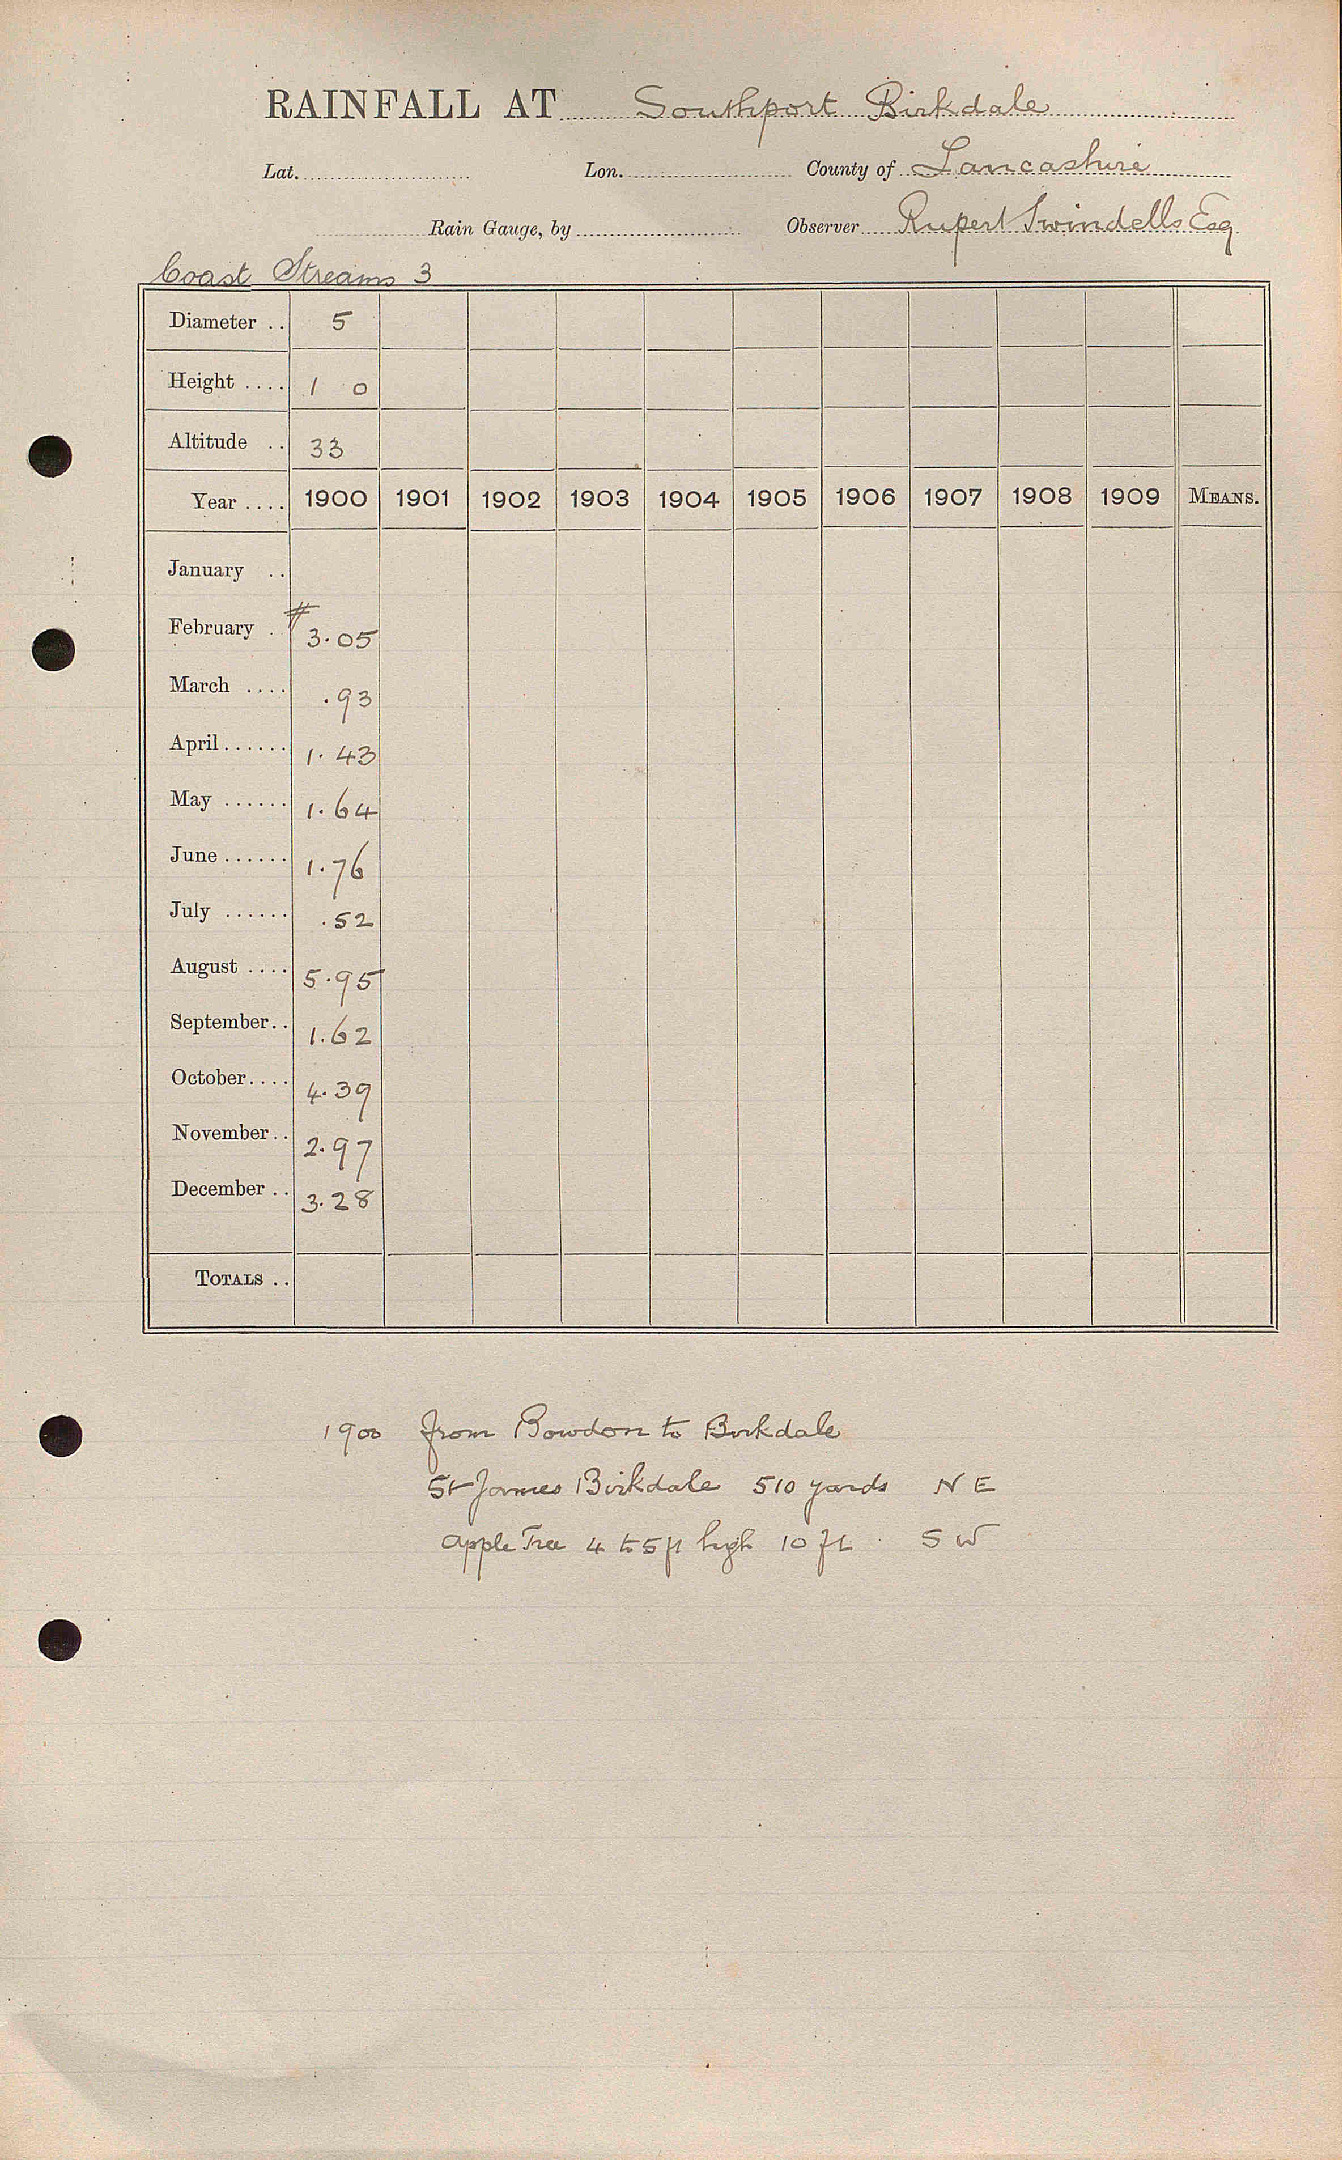 RAINFALL AT Southport Birkdale
Lat. Lon. County of Lancashire
Rain Gauge, by Observer Rupert Swindells Esq
Coast Streams 3
Diameter .. 5
Height .... 1 0
Altitude .. 33
Year .... 1900 1901 1902 1903 1904 1905 1906 1907 1908 1909 MEANS.
January ..
February . # 3.05
March .... .93
April...... 1.43
May ...... 1.64
June...... 1.76
July ...... .52
August .... 5.95
September.. 1.62
October.... 4.39
November.. 2.97
December .. 3.28
TOTALS ..
1900 from Bowdon to Birkdale
St James Birkdale 510 yards N E
apple Tree 4 to 5 ft high 10 ft S W